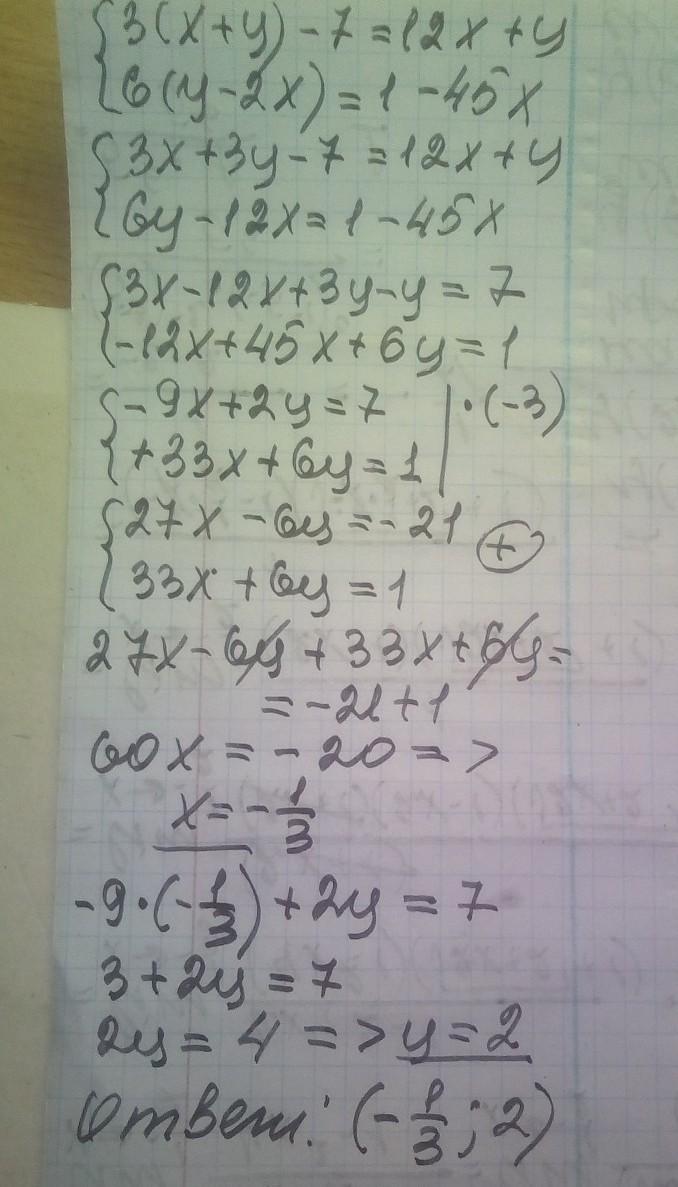 {3(x+y)-7=12x+y
{6(y-2x)=1-45x
{3x+3y-7=12x+y
{6y-12x=1-45x
{3x-12x+3y-y=7
{-12x+45x+6y=1
{-9x+2y=7 |·(-3)
{+33x+6y=1 |
{27x-6y=-21 (+)
{33x+6y=1
27x-6y+33x+6y=
=-21+1
60x=-20=>
x=-1/3
-9·(-1/3)+2y=7
3+2y=7
2y=4=>y=2
Ответ: (-1/3; 2)